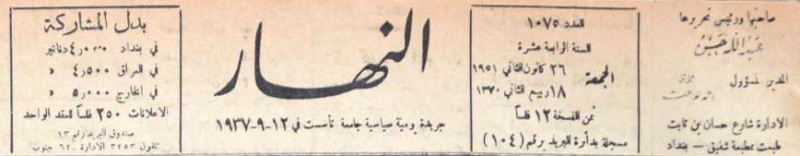 صاحبها ورئيس تحريرها
عبدالله حسن
المدير المسؤول
الادارة شارع حسان بن ثابت
طبعت بمطبعة شفيق - بغداد
العدد ١٠٧٥
السنة الرابعة عشرة
الجمعة
٢٦ كانون الثاني ١٩٥١
١٨ ربيع الثاني ١٣٧٠
ثمن النسخة ١٢ فلساً
مسجلة بدائرة البريد برقم (١٠٤)
النهار
جريدة يومية سياسية جامعة تأسست في ١٢-٩-١٩٣٧
بدل المشاركة
في بغداد ٤٫٠٠٠ دنانير
في العراق ٤٫٥٠٠ «
في الخارج ٥٫٠٠٠ «
الاعلانات ٢٥٠ فلساً للعقد الواحد
صندوق البريد رقم ١٣
تلفون ٣٢٥٣ الادارة ٦٢٠ جنوب